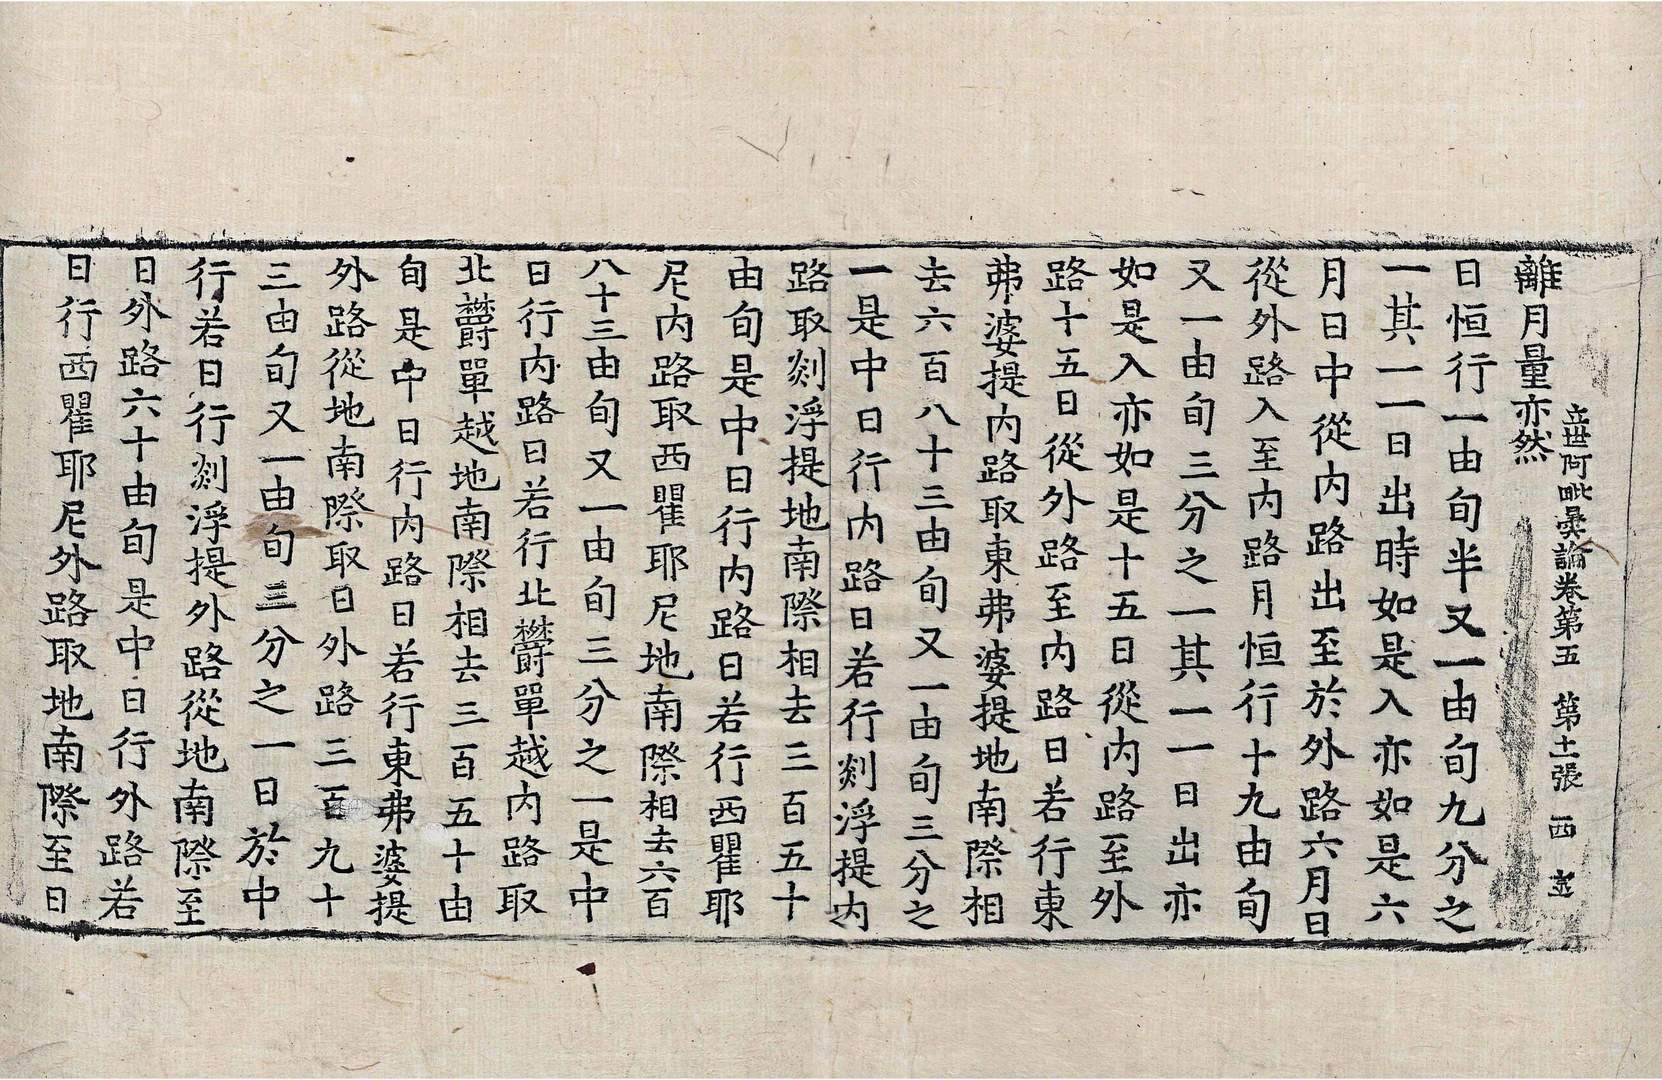 立世阿毗曇論卷第五 第十一張 西
離月量亦然
日恒行一由旬半又一由旬九分之
一其一一日出時如是入亦如是六
月日中從内路出至於外路六月日
從外路入至内路月恒行十九由旬
又一由旬三分之一其一一日出亦
如是入亦如是十五日從内路至外
路十五日從外路至内路日若行東
弗婆提内路取東弗婆提地南際相
去六百八十三由旬又一由旬三分之
一是中日行内路日若行剡浮提内
路取剡浮提地南際相去三百五十
由旬是中日行内路日若行西瞿耶
尼内路取西瞿耶尼地南際相去六百
八十三由旬又一由旬三分之一是中
日行内路日若行北欝單越内路取
北欝單越地南際相去三百五十由
旬是中日行内路日若行東弗婆提
外路從地南際取日外路三百九十
三由旬又一由旬三分之一日於中
行若日行剡浮提外路從地南際至
日外路六十由旬是中日行外路若
日行西瞿耶尼外路取地南際至日